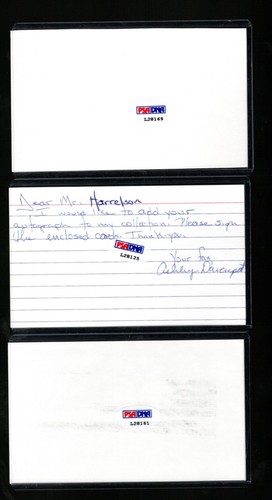 PSA/DNA
L28169
Dear Mr. Harrelson
I would like to add your
autograph to my collection. Please sign
the enclosed cards. Thank you.
PSA/DNA
L28125
Your fan
Ashley
PSA/DNA
L28161